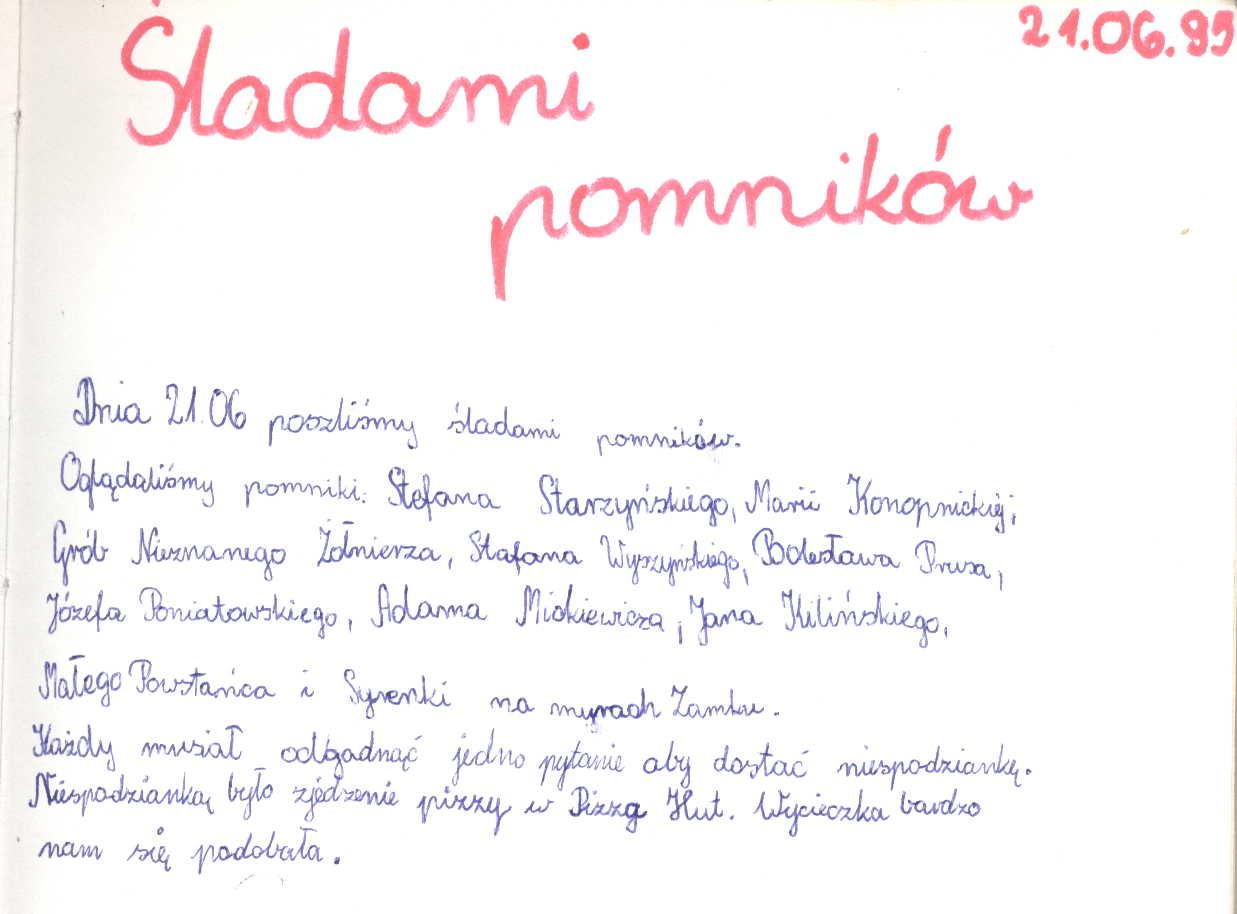 21.06.99
Śladami
pomników
Dnia 21.06 poszliśmy śladami pomników.
Oglądaliśmy pomniki: Stefana Starzyńskiego, Marii Konopnickiej,
Grób Nieznanego Żołnierza, Stafana Wyszyńskiego, Bolesława Prusa,
Józefa Poniatowskiego, Adama Mickiewicza, Jana Kilińskiego,
Małego Powstańca i Syrenki na murach Zamku.
Każdy musiał odgadnąć jedno pytanie aby dostać niespodziankę.
Niespodzianką było zjedzenie pizzy w Pizzg Hut. Wycieczka bardzo
nam się podobała.